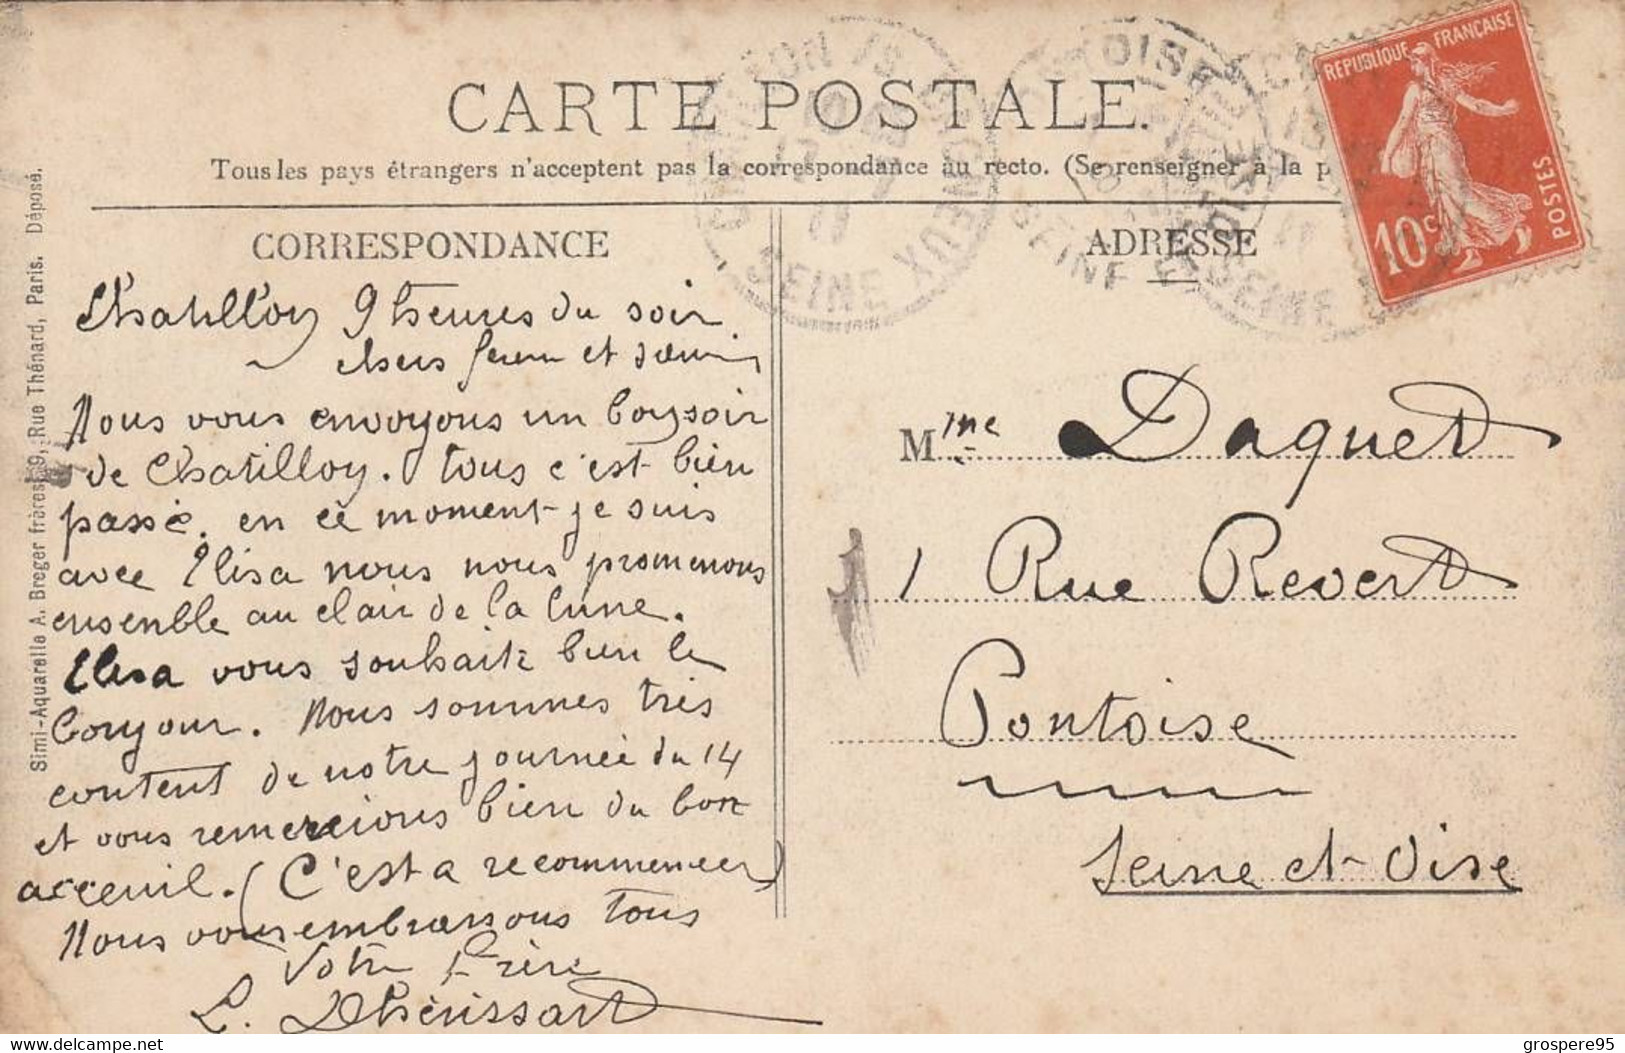 CARTE POSTALE.
Tous les pays étrangers n'acceptent pas la correspondance au recto. (Se renseigner à la p
REPUBLIQUE FRANÇAISE
10c POSTES
PONTOISE
SEINE ET OISE
SEINE
11
CORRESPONDANCE
Chatilloy 9 heures du soir
chers et
Nous vous envoyons un bonsoir
de Chatilloy. tous c'est bien
passé. en cè moment je suis
avec Elisa nous nous promenons
ensenble au clair de la lune.
Elisa vous souhaite bien le
bonjour. Nous sommes très
content de notre journée du 14
et vous remercions bien du bon
acceuil. (C'est a recommencer)
Nous vous embrassons tous
Votre Frère
L. Dhérissart
ADRESSE
Mme Daquet
1 Rue Revert
Pontoise
Seine et Oise
Simi-Aquarelle A. Breger frères, 9, Rue Thénard, Paris. Déposé.
delcampe.net
grospere95